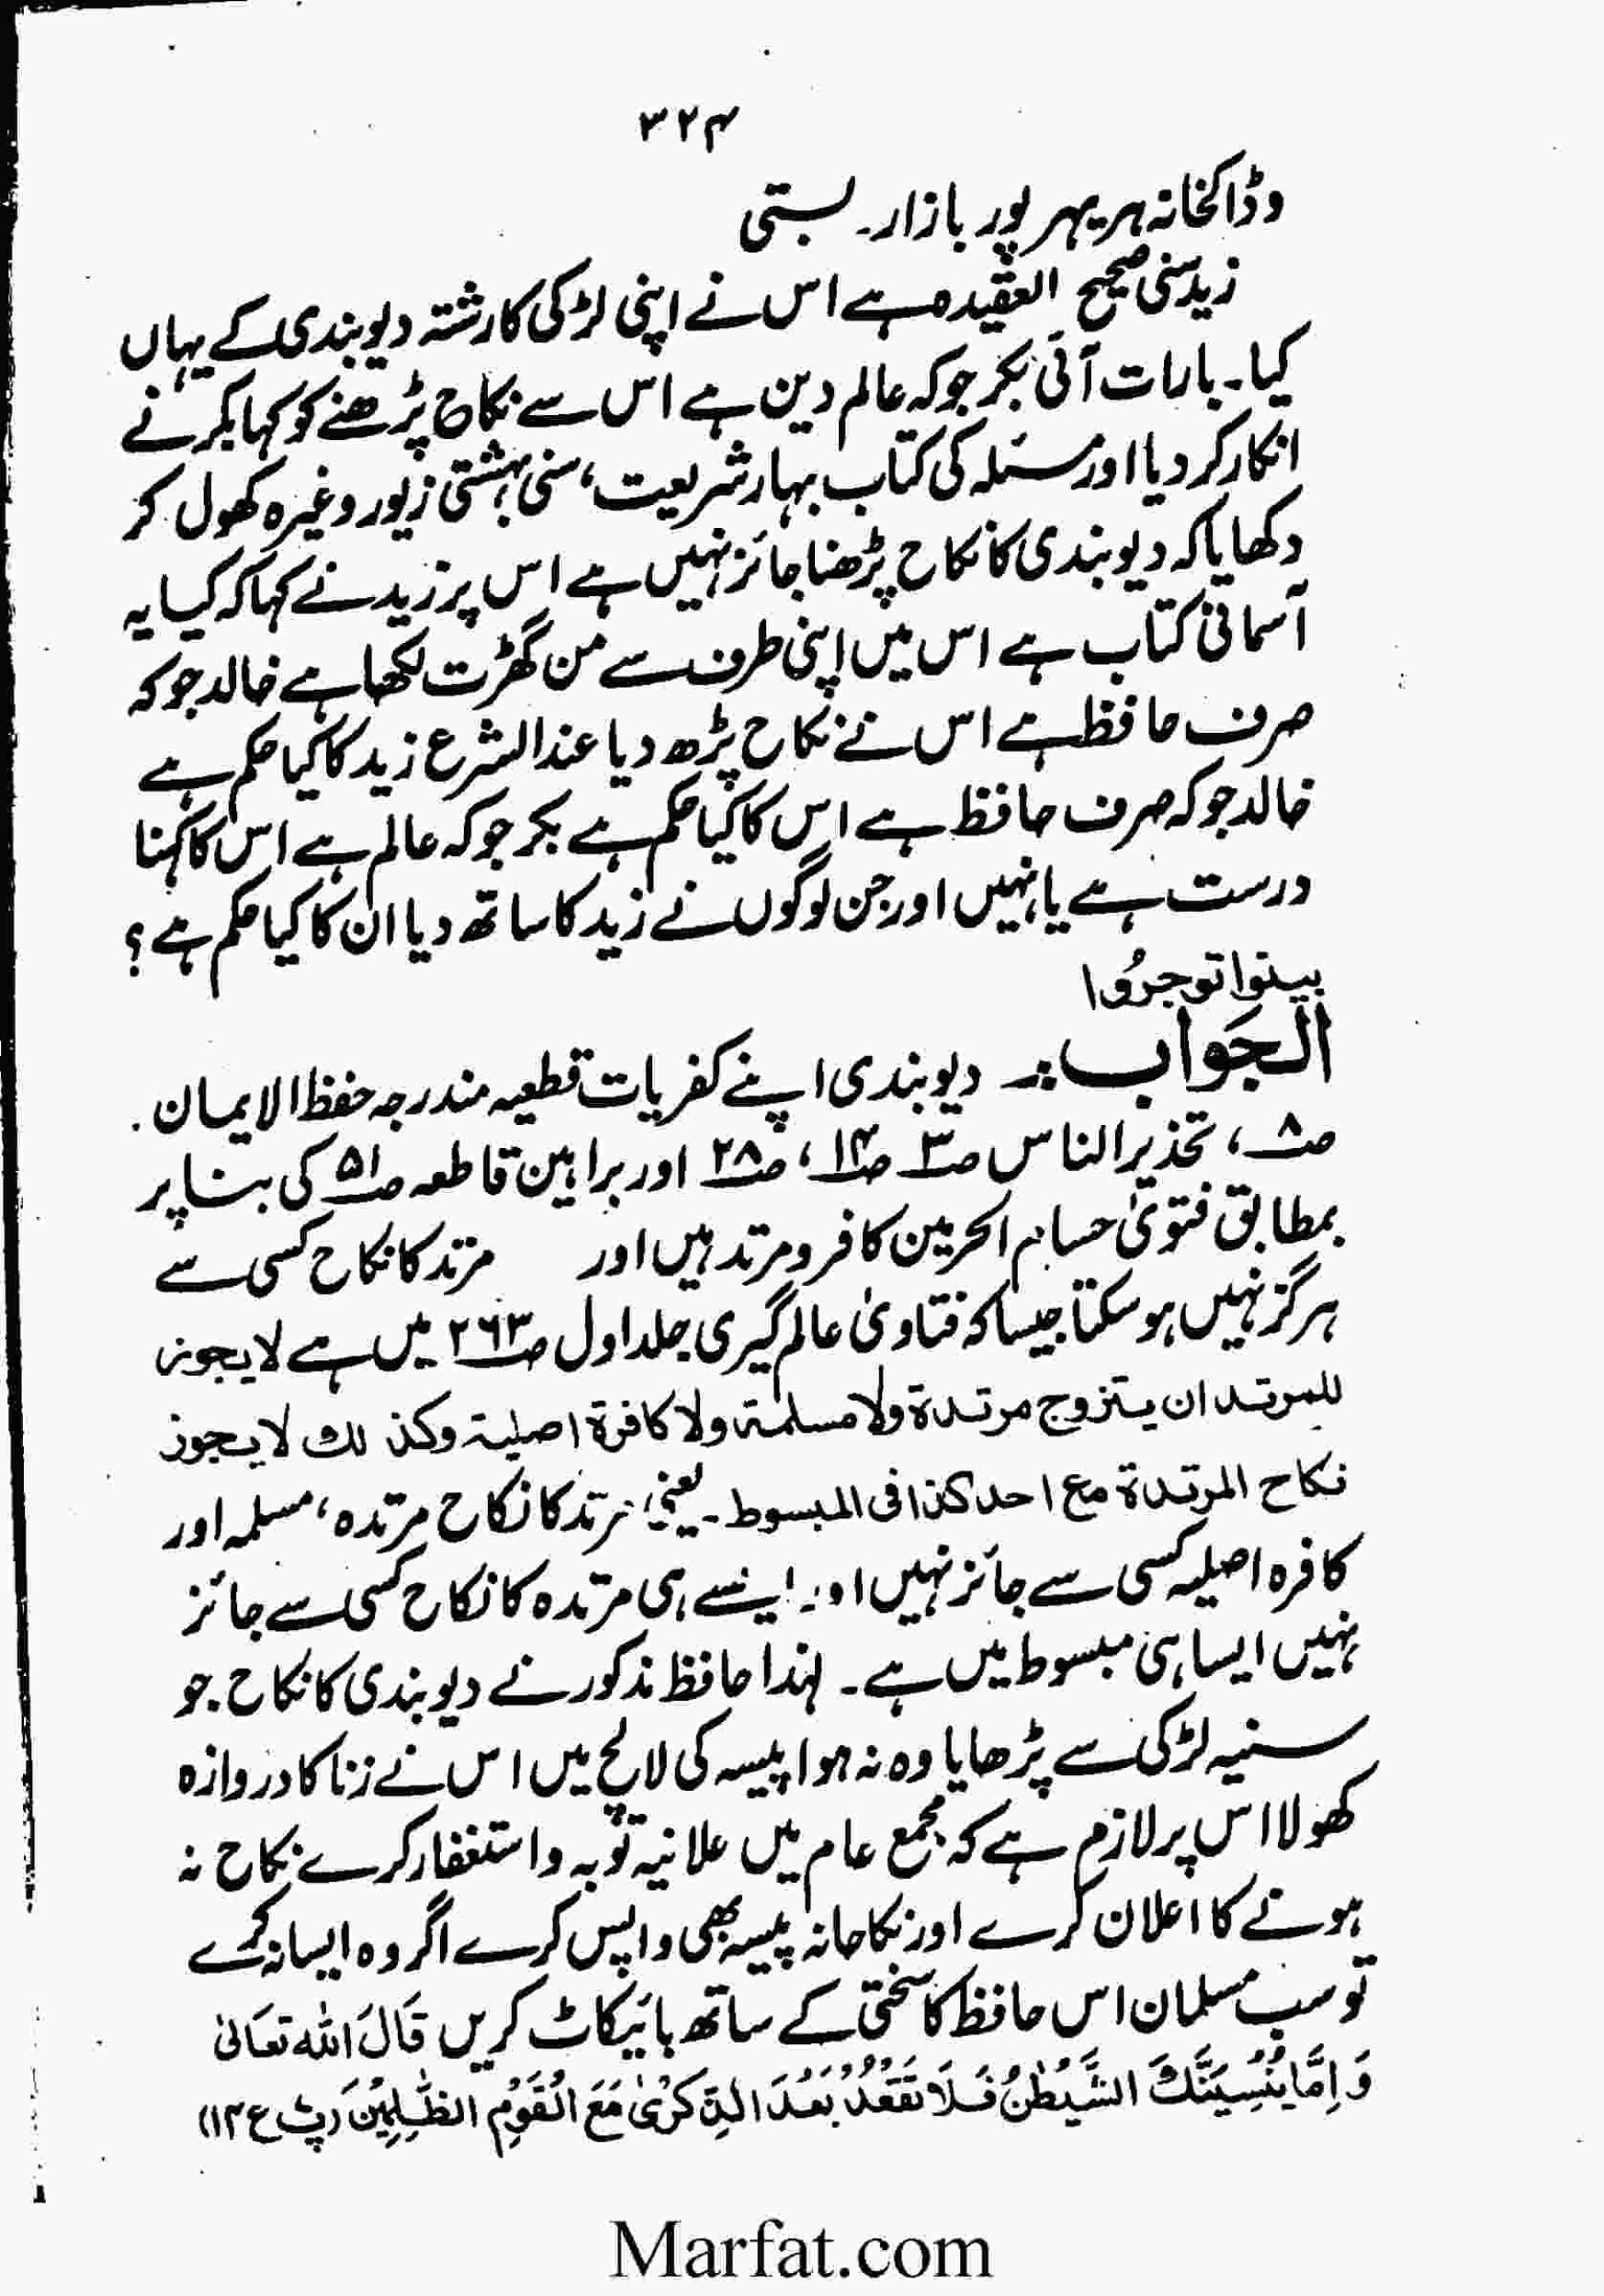 ۳۲۴
وڈاکخانہ ہریہر پور بازار۔ بستی
زید سنی صحیح العقیدہ ہے اس نے اپنی لڑکی کا رشتہ دیوبندی کے یہاں
کیا۔ بارات آئی بکر جو کہ عالم دین ہے اس سے نکاح پڑھنے کو کہا بکر نے
انکار کر دیا اور مسئلہ کی کتاب بہار شریعت، سنی بہشتی زیور وغیرہ کھول کر
دکھایا کہ دیوبندی کا نکاح پڑھنا جائز نہیں ہے اس پر زید نے کہا کہ کیا یہ
آسمانی کتاب ہے اس میں اپنی طرف سے من گھڑت لکھا ہے خالد جو کہ
صرف حافظ ہے اس نے نکاح پڑھ دیا عند الشرع زید کا کیا حکم ہے
خالد جو کہ صرف حافظ ہے اس کا کیا حکم ہے بکر جو کہ عالم ہے اس کا کہنا
درست ہے یا نہیں اور جن لوگوں نے زید کا ساتھ دیا ان کا کیا حکم ہے؟
بینوا توجرُوا
الجَوَاب:۔ دیوبندی اپنے کفریات قطعیہ مندرجہ حفظ الایمان۔
صـ۸، تحذیر الناس صـ۳ صـ۱۴، صـ۲۸ اور براہین قاطعہ صـ۵۱ کی بنا پر
بمطابق فتویٰ حسام الحرمین کافر و مرتد ہیں اور مرتد کا نکاح کسی سے
ہرگز نہیں ہو سکتا جیسا کہ فتاویٰ عالم گیری جلد اول صـ۲۶۳ میں ہے لا یجوز
للمرتد ان یتزوج مرتدة ولا مسلمة ولا کافرة اصلیة وکذلك لا یجوز
نکاح المرتدة مع احد کذا فی المبسوط۔ یعنی مرتد کا نکاح مرتدہ، مسلمہ اور
کافرہ اصلیہ کسی سے جائز نہیں اور ایسے ہی مرتدہ کا نکاح کسی سے جائز
نہیں ایسا ہی مبسوط میں ہے۔ لہذا حافظ مذکور نے دیوبندی کا نکاح جو
سنیہ لڑکی سے پڑھایا وہ نہ ہوا پیسہ کی لالچ میں اس نے زنا کا دروازہ
کھولا اس پر لازم ہے کہ مجمع عام میں علانیہ توبہ و استغفار کرے نکاح نہ
ہونے کا اعلان کرے اور نکاحانہ پیسہ بھی واپس کرے اگر وہ ایسا نہ کرے
تو سب مسلمان اس حافظ کا سختی کے ساتھ بائیکاٹ کریں قَالَ اللہ تعَالیٰ
وَ اِمَّا یُنْسِیَنَّكَ الشَّیْطٰنُ فَلَا تَقْعُدْ بَعْدَ الذِّکْرٰی مَعَ الْقَوْمِ الظّٰلِمِیْنَ (پ ع ۱۴)
Marfat.com